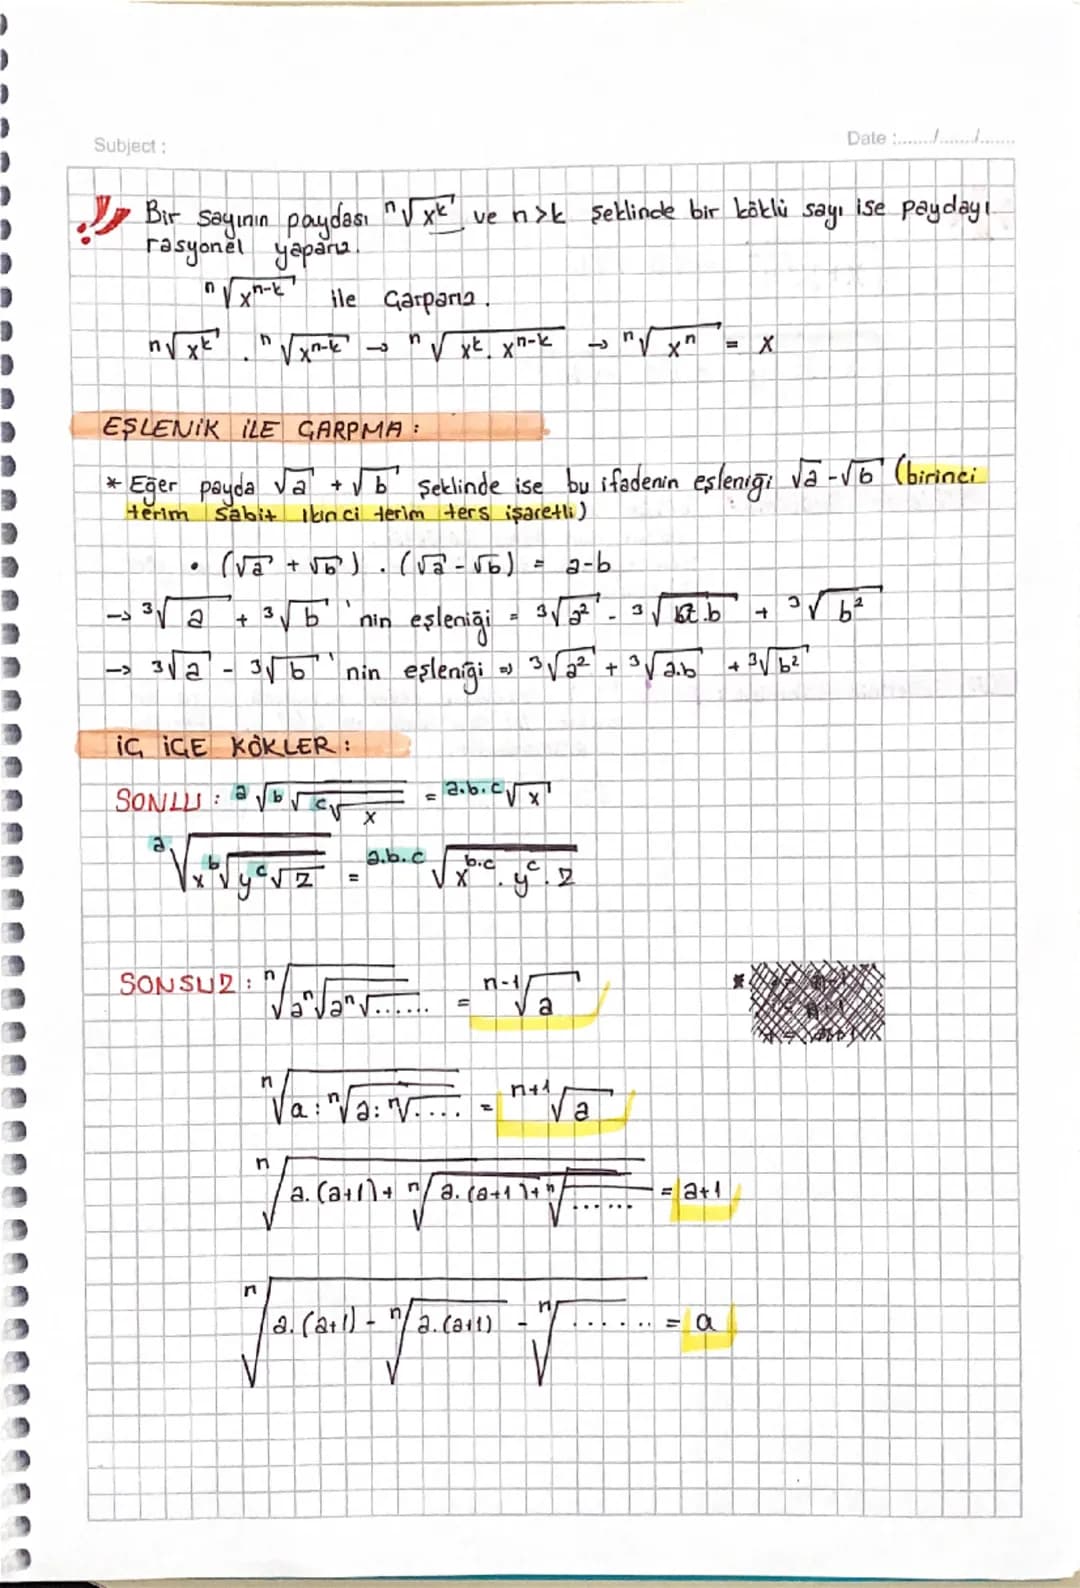 Subject :
Date :......../......../........
Bir sayının paydası ⁿ√x^k ve n>k şeklinde bir köklü sayı ise paydayı
rasyonel yaparız.
ⁿ√x^(n-k) ile Çarparız.
ⁿ√x^k . ⁿ√x^(n-k) → ⁿ√x^k . x^(n-k) → ⁿ√x^n = x
EŞLENİK İLE ÇARPMA :
* Eğer payda √a + √b şeklinde ise bu ifadenin eşleniği √a - √b (birinci
terim sabit ikinci terim ters işaretli)
• (√a + √b) . (√a - √b) = a-b
→ ³√a + ³√b 'nin eşleniği = ³√a² - ³√a.b + ³√b²
→ ³√a - ³√b 'nin eşleniği ⇒ ³√a² + ³√a.b + ³√b²
İÇ İÇE KÖKLER :
SONLU : ᵃ√ᵇ√ᶜ√x = ᵃ·ᵇ·ᶜ√x
ᵃ√x ᵇ√y ᶜ√z = ᵃ·ᵇ·ᶜ√x^(b.c) . y^c . z
SONSUZ : ⁿ√a ⁿ√a ⁿ√...... = ⁿ⁻¹√a
ⁿ√a : ⁿ√a : ⁿ√.... = ⁿ⁺¹√a
ⁿ√a.(a+1) + ⁿ√a.(a+1) + ⁿ√...... = a+1
ⁿ√a.(a+1) - ⁿ√a.(a+1) - ⁿ√...... = a